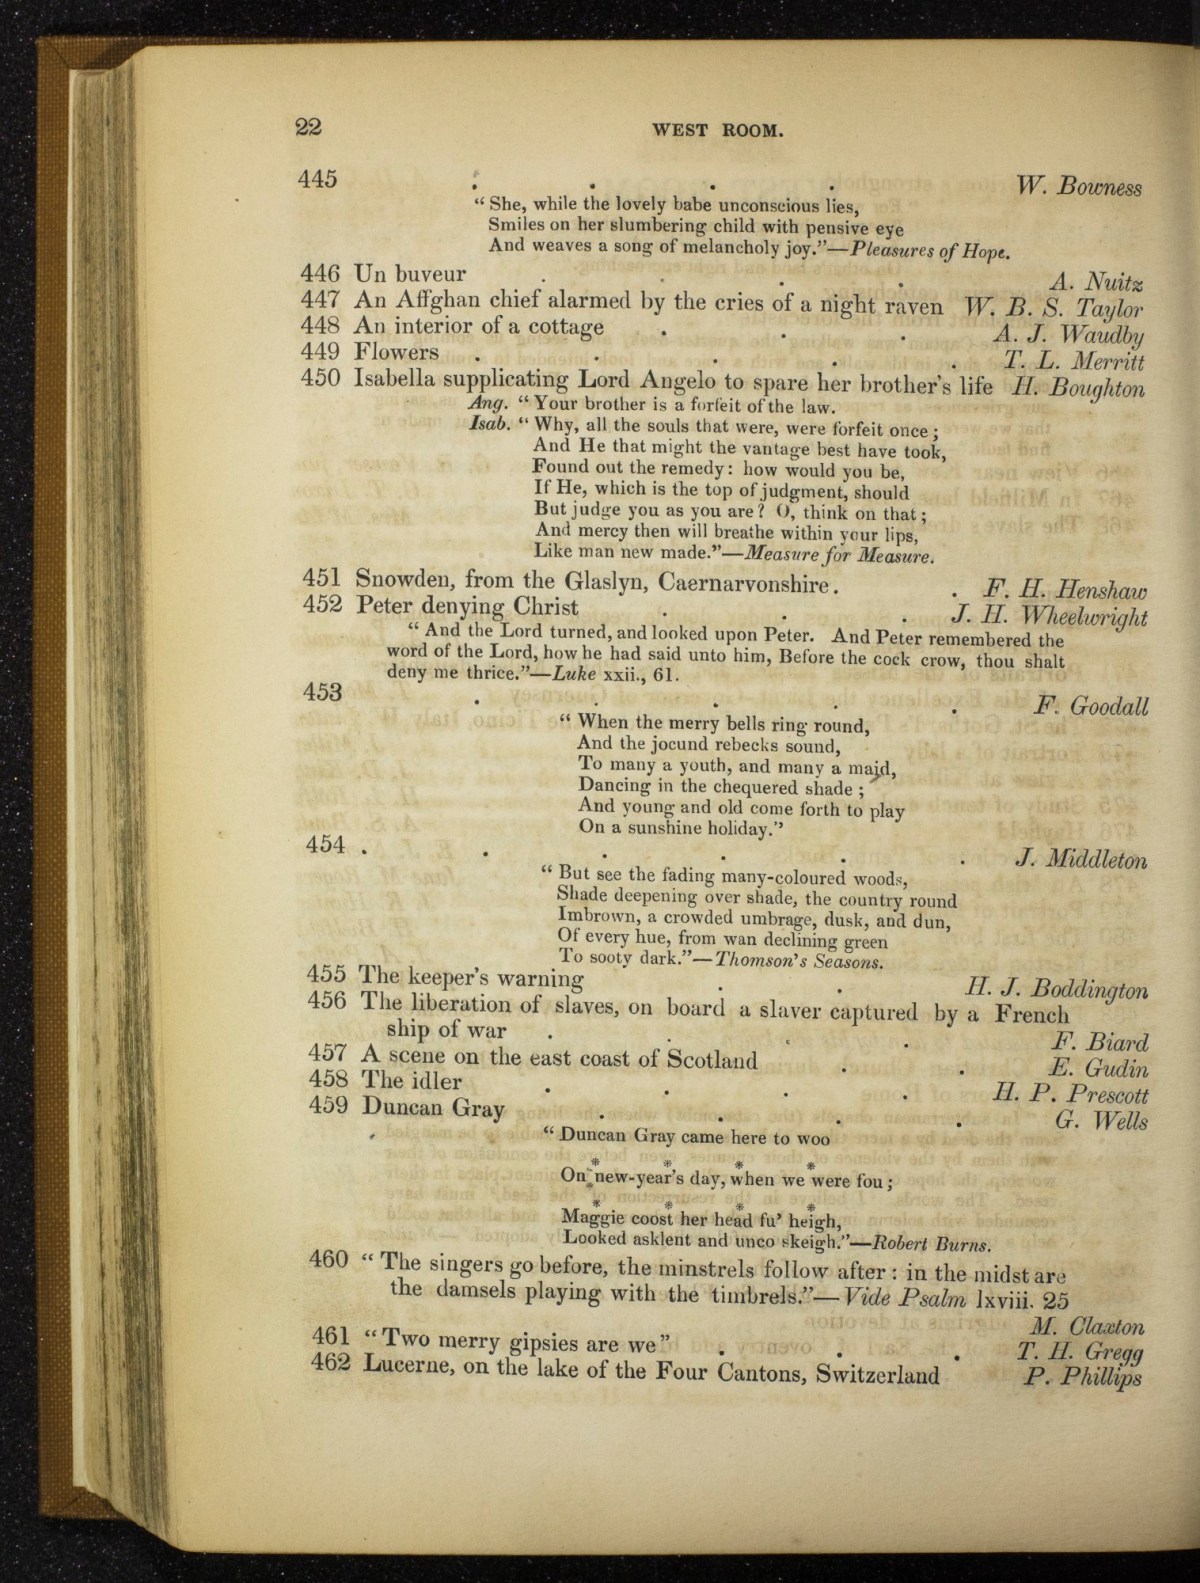 22 WEST ROOM.
445 . . . . W. Bowness
“ She, while the lovely babe unconscious lies,
Smiles on her slumbering child with pensive eye
And weaves a song of melancholy joy.”—Pleasures of Hope.
446 Un buveur . . . . A. Nuitz
447 An Affghan chief alarmed by the cries of a night raven W. B. S. Taylor
448 An interior of a cottage . . . A. J. Waudby
449 Flowers . . . . . T. L. Merritt
450 Isabella supplicating Lord Angelo to spare her brother's life H. Boughton
Ang. “ Your brother is a forfeit of the law.
Isab. “ Why, all the souls that were, were forfeit once ;
And He that might the vantage best have took,
Found out the remedy: how would you be,
If He, which is the top of judgment, should
But judge you as you are? O, think on that ;
And mercy then will breathe within your lips,
Like man new made.”—Measure for Measure.
451 Snowden, from the Glaslyn, Caernarvonshire . . F. H. Henshaw
452 Peter denying Christ . . . J. H. Wheelwright
“ And the Lord turned, and looked upon Peter. And Peter remembered the
word of the Lord, how he had said unto him, Before the cock crow, thou shalt
deny me thrice.”—Luke xxii., 61.
453 . . . . . F. Goodall
“ When the merry bells ring round,
And the jocund rebecks sound,
To many a youth, and many a maid,
Dancing in the chequered shade ;
And young and old come forth to play
On a sunshine holiday.”
454 . . . . . . J. Middleton
“ But see the fading many-coloured woods,
Shade deepening over shade, the country round
Imbrown, a crowded umbrage, dusk, and dun,
Of every hue, from wan declining green
To sooty dark.”—Thomson's Seasons.
455 The keeper's warning . . H. J. Boddington
456 The liberation of slaves, on board a slaver captured by a French
ship of war . . . . F. Biard
457 A scene on the east coast of Scotland . . E. Gudin
458 The idler . . . . H. P. Prescott
459 Duncan Gray . . . . G. Wells
“ Duncan Gray came here to woo
* * * *
On new-year's day, when we were fou ;
* * * *
Maggie coost her head fu' heigh,
Looked asklent and unco skeigh.”—Robert Burns.
460 “ The singers go before, the minstrels follow after : in the midst are
the damsels playing with the timbrels.”—Vide Psalm lxviii. 25
M. Claxton
461 “ Two merry gipsies are we ” . . . T. H. Gregg
462 Lucerne, on the lake of the Four Cantons, Switzerland P. Phillips